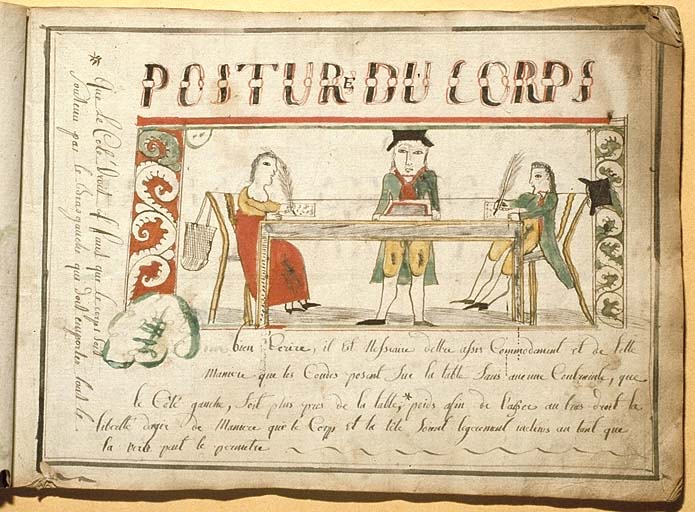 POSTURE DU CORPS
Pour bien Ecrire, il Est Nessaire dettre assis Commodement et de telle
Maniere que les Coudes posent Sur la table Sans aucune Contrainte, que
le Côté gauche, Soit plus près de la table, * poids afin de laisser au bras droit la
libertté dagir de Maniere que le Corps et la tête Soient legerement inclines au tant que
la vue peut le permettre
* Que de Côté Droit il faut que le corps Soit
Soutenu par le Bras gauche qui doit emporter tout le